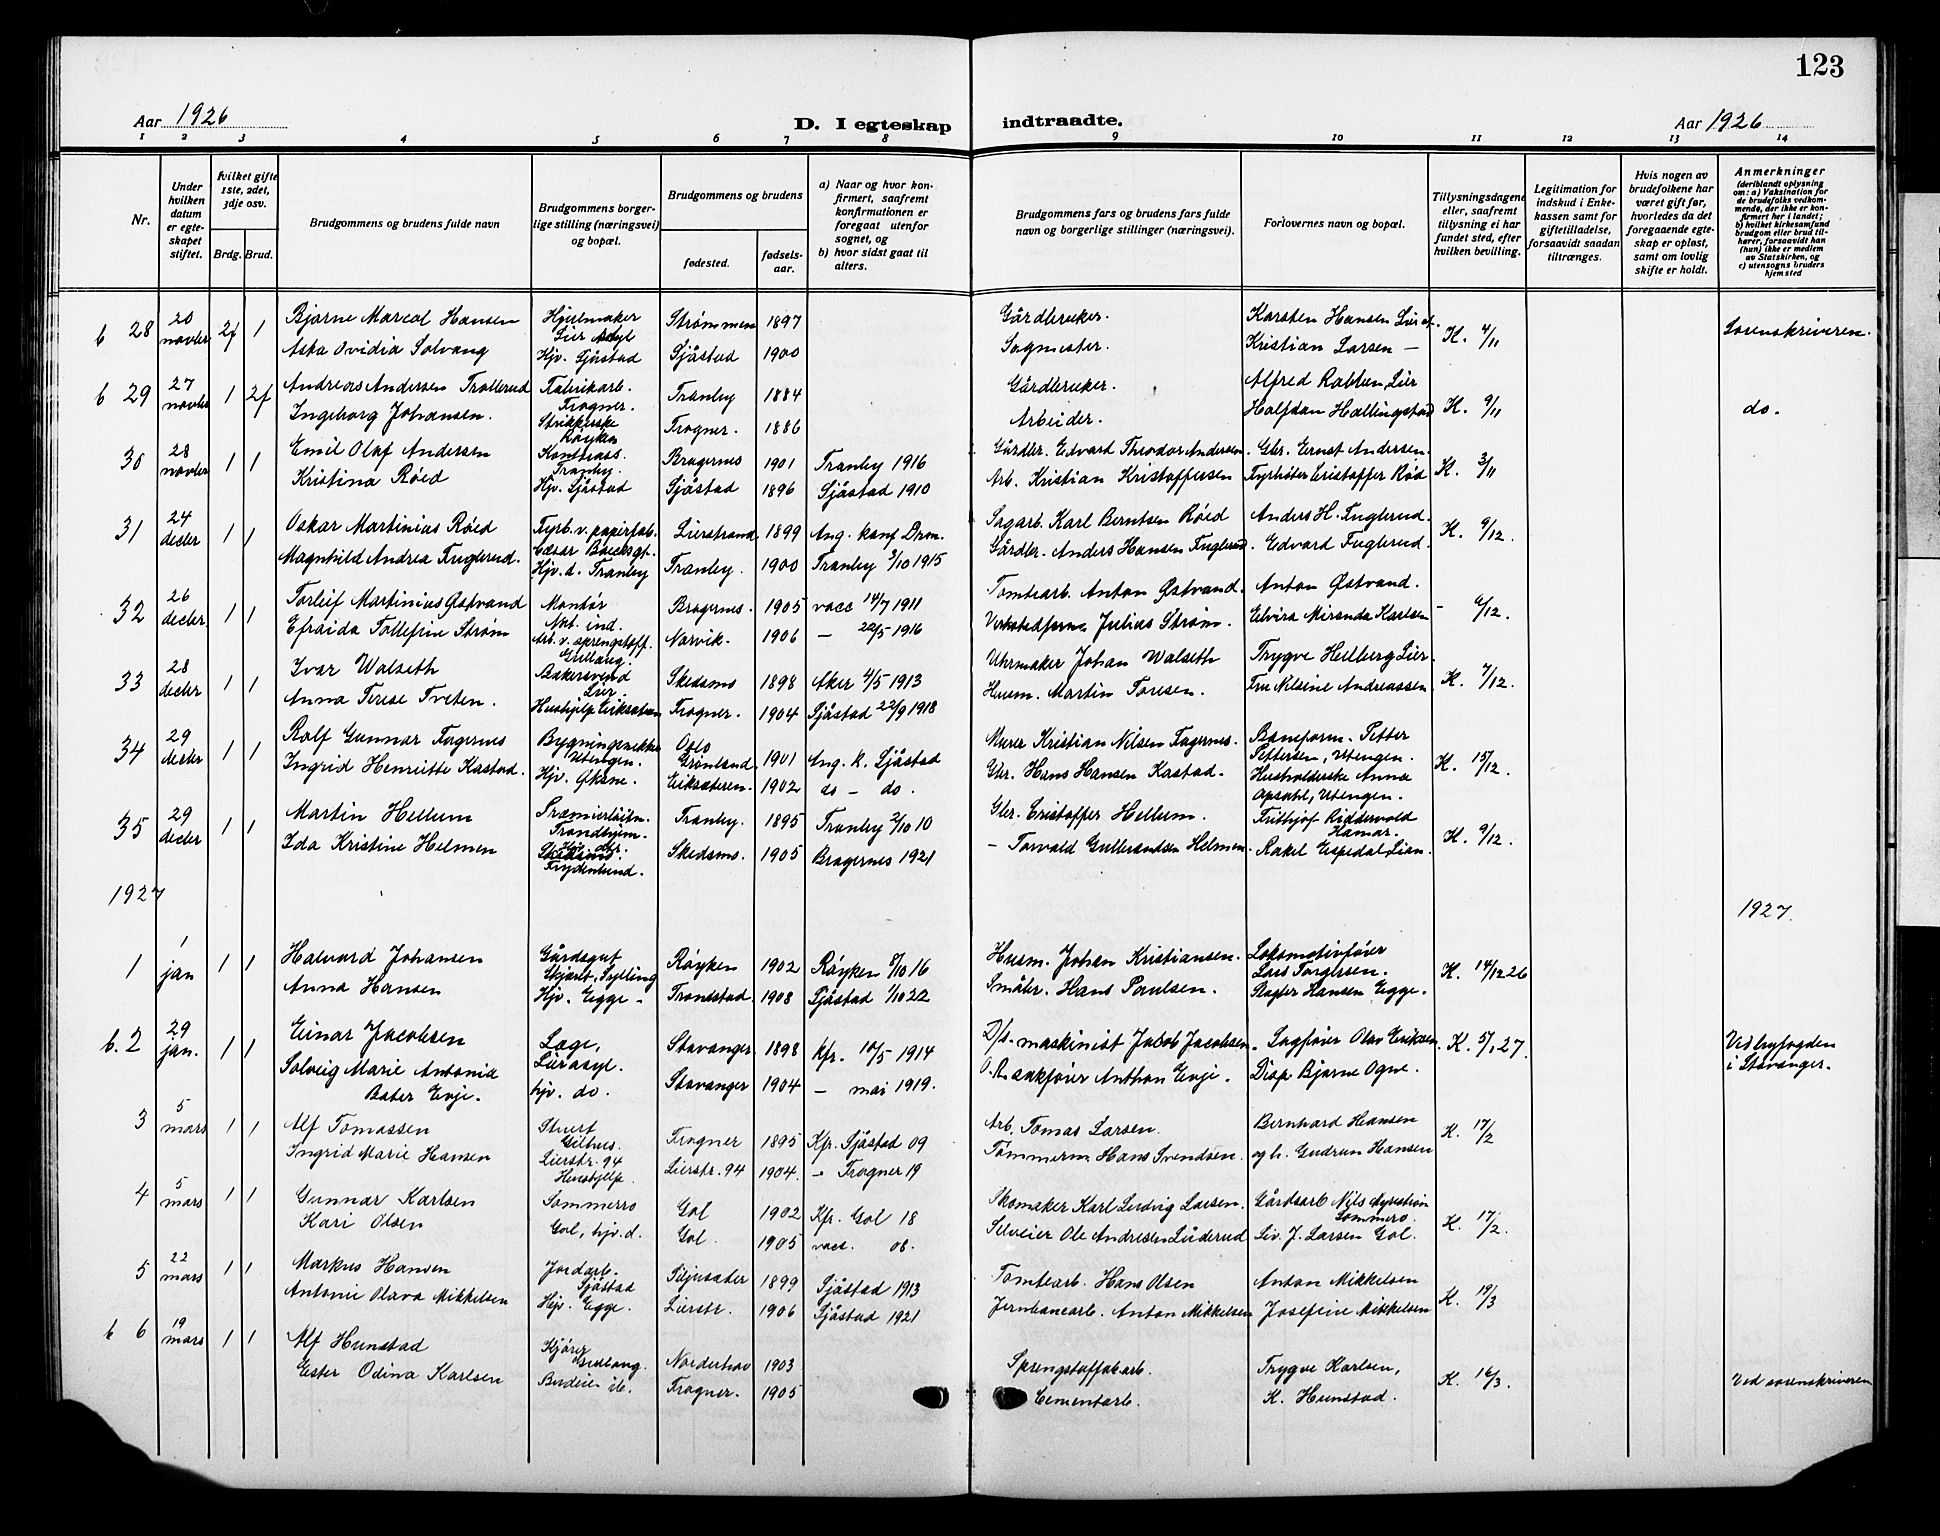 123
Aar 1926
D. I egteskap indtraadte.
Aar 1926
1 2 3 4 5 6 7 8 9 10 11 12 13 14
Nr.
Under hvilken datum er egteskapet stiftet.
Hvilket gifte 1ste, 2det, 3dje osv.
Brdg. Brud.
Brudgommens og brudens fulde navn
Brudgommens borgerlige stilling (næringsvei) og bopæl.
Brudgommens og brudens
fødested.
fødselsaar.
a) Naar og hvor konfirmert, saafremt konfirmationen er foregaat utenfor sognet, og
b) hvor sidst gaat til alters.
Brudgommens fars og brudens fars fulde navn og borgerlige stillinger (næringsvei).
Forlovernes navn og bopæl.
Tillysningsdagene eller, saafremt tillysning ei har fundet sted, efter hvilken bevilling.
Legitimation for indskud i Enkekassen samt for giftetilladelse, forsaavidt saadan tiltrænges.
Hvis nogen av brudefolkene har været gift før, hvorledes da det foregaaende egteskap er opløst, samt om lovlig skifte er holdt.
Anmerkninger
(deriblandt oplysning om: a) Vaksination for de brudefolks vedkommende, der ikke er konfirmert her i landet; b) hvilket kirkesamfund brudgom eller brud tilhører, forsaavidt han (hun) ikke er medlem av Statskirken, og c) utensogns bruders hjemsted
b 28 20 novber 2f 1 Bjarne Marcol Hansen Hjulmaker Lier Strømmen 1897 Gårdbruker. Karsten Hansen Lier K. 4/11 Sorenskriveren.
Aska Ovidia Solvang Hjv. Sjåstad Sjåstad 1900 Sagmester. Kristian Larsen —
b 29 27 novber 1 2f Andreas Andersen Trollerud Fabrikarb. Frogner. Tranby 1884 Gårdbruker. Alfred Rabben, Lier K. 9/11 do.
Ingeborg Johansen. Strikkerske Røyken Frogner. 1886 Arbeider. Halfdan Hallingstad
30 28 novber 1 1 Emil Olaf Andersen Tranby. Bragernes 1901 Tranby 1916 Gårdbr. Edvard Theodor Andersen. Gbr. Ernst Andersen. K. 3/11
Kristina Røed Hjv. Sjåstad Sjåstad 1896 Sjåstad 1910 Arb. Kristian Kristoffersen Fyrbøter Cristoffer Rød
31 24 decber 1 1 Oskar Martinius Røed Fyrb. v. papirfab. Lierstrand 1899 Ang. konf. Drm. Sagarb. Karl Berntsen Røed Anders H. Fuglerud. K. 9/12.
Magnhild Andrea Fuglerud. Hjv. d. Tranby Tranby. 1900 Tranby 3/10 1915 Gårdbr. Anders Hansen Fuglerud. Edvard Fuglerud.
32 26 decber. 1 1 Torleif Martinius Østvand Montør Bragernes. 1905 vacc 14/7 1911 Tomtearb. Anton Østvand. Anton Østvand. – 6/12.
Efraida Tollefine Strøm Arb. v. sprengstoff. Gullaug. Narvik. 1906 — 22/5 1916 Julius Strøm. Elvira Miranda Karlsen
33 28 decber 1 1 Ivar Walseth Bakersvend Lier Skedsmo 1898 Aker 4/5 1913 Uhrmaker Johan Walseth Trygve Hellberg Lier. K. 7/12.
Anna Terese Tveten. Hushjelp Eiksetern Frogner. 1904 Sjåstad 22/9 1918 Husm. Martin Toresen. Fru Nilsine Andreassen.
34 29 decber 1 1 Rolf Gunnar Fagernes Utengen. Oslo Grønland 1901 Ang. k. Sjåstad Murer Kristian Nilsen Fagernes. Baneform. Petter Pettersen, Utengen. K. 15/12.
Ingrid Henriette Kastad. Hjv. Eikseteren. 1902 do — do. Gbr. Hans Hansen Kastad. Husholderske Anna Opsahl, Utengen.
35 29 decber 1 1 Martin Hellum Premierløitn. Trondhjem. Tranby. 1895 Tranby 2/10 10 Gbr. Cristoffer Hellum. Frithjof Riddervold Hamar. K. 9/12.
Ida Kristine Helmen Frydenlund. Skedsmo. 1905 Bragernes 1921 – Torvald Gulbrandsen Helmen. Rakel Espedal Lian.
1927 1927.
1 1 jan 1 1 Halvard Johansen Gårdsgut Sylling Røyken 1902 Røyken 8/10 16 Husm. Johan Kristiansen. Lokomotivfører Lars Torgersen. K. 14/12 26
Anna Hansen Hjv. Egge – Tronstad 1908 Sjåstad 1/10 22 Småbr. Hans Paulsen. Hansen Egge.
b. 2 29 jan. 1 1 Einar Jacobsen Læge, Lierasyl. Stavanger 1898 Kfr. 10/5 1914 D/s. maskinist Jakob Jacobsen. Sagfører Olav Eriksen. K. 5/1 27. Ved byfogden i Stavanger.
Solveig Marie Antonia Bater Evje. hjv. do. Stavanger 1904 — mai 1919. Anthon Evje. Bjarne Ogne.
3 5 mars 1 1 Alf Tomassen Frogner 1895 Kfr. Sjåstad 09 Arb. Tomas Larsen. Bernhard Hansen K. 17/2
Ingrid Marie Hansen Lierstr. 94 Hushjelp. Lierstr. 94 1904. – Frogner 19 Tømmerm. Hans Svendsen. og h. Gudrun Hansen
4 5 mars 1 1 Gunnar Karlsen Sommerro Gol 1902 Kfr. Gol 18 Skomaker Karl Ludvig Larsen. Gårdsarb Nils Sommero. K. 17/2.
Kari Olsen Gol, hjv. d. Gol. 1905 vacc. 08. Selveier Ole Andresen Luderud Liv. J. Larsen Gol.
5 22 mars 1 1 Markus Hansen Jordarb. Sjåstad 1899 Sjåstad 1913 Tomtearb. Hans Olsen Anton Mikkelsen K. 19/3
Antonie Olava Mikkelsen Hjv. Egge. Lierstr. 1906 Sjåstad 1921 Jernbanearb. Anton Mikkelsen Josefine Mikkelsen
b 6 19 mars 1 1 Alf Hunstad Kjører Gullaug. Norderhov 1903 Sprengstoffabarb. Trygve Karlsen, K. 16/3. Ved sorenskriveren
Ester Odina Karlsen Frogner. 1905 Cementarb. K. Hunstad.